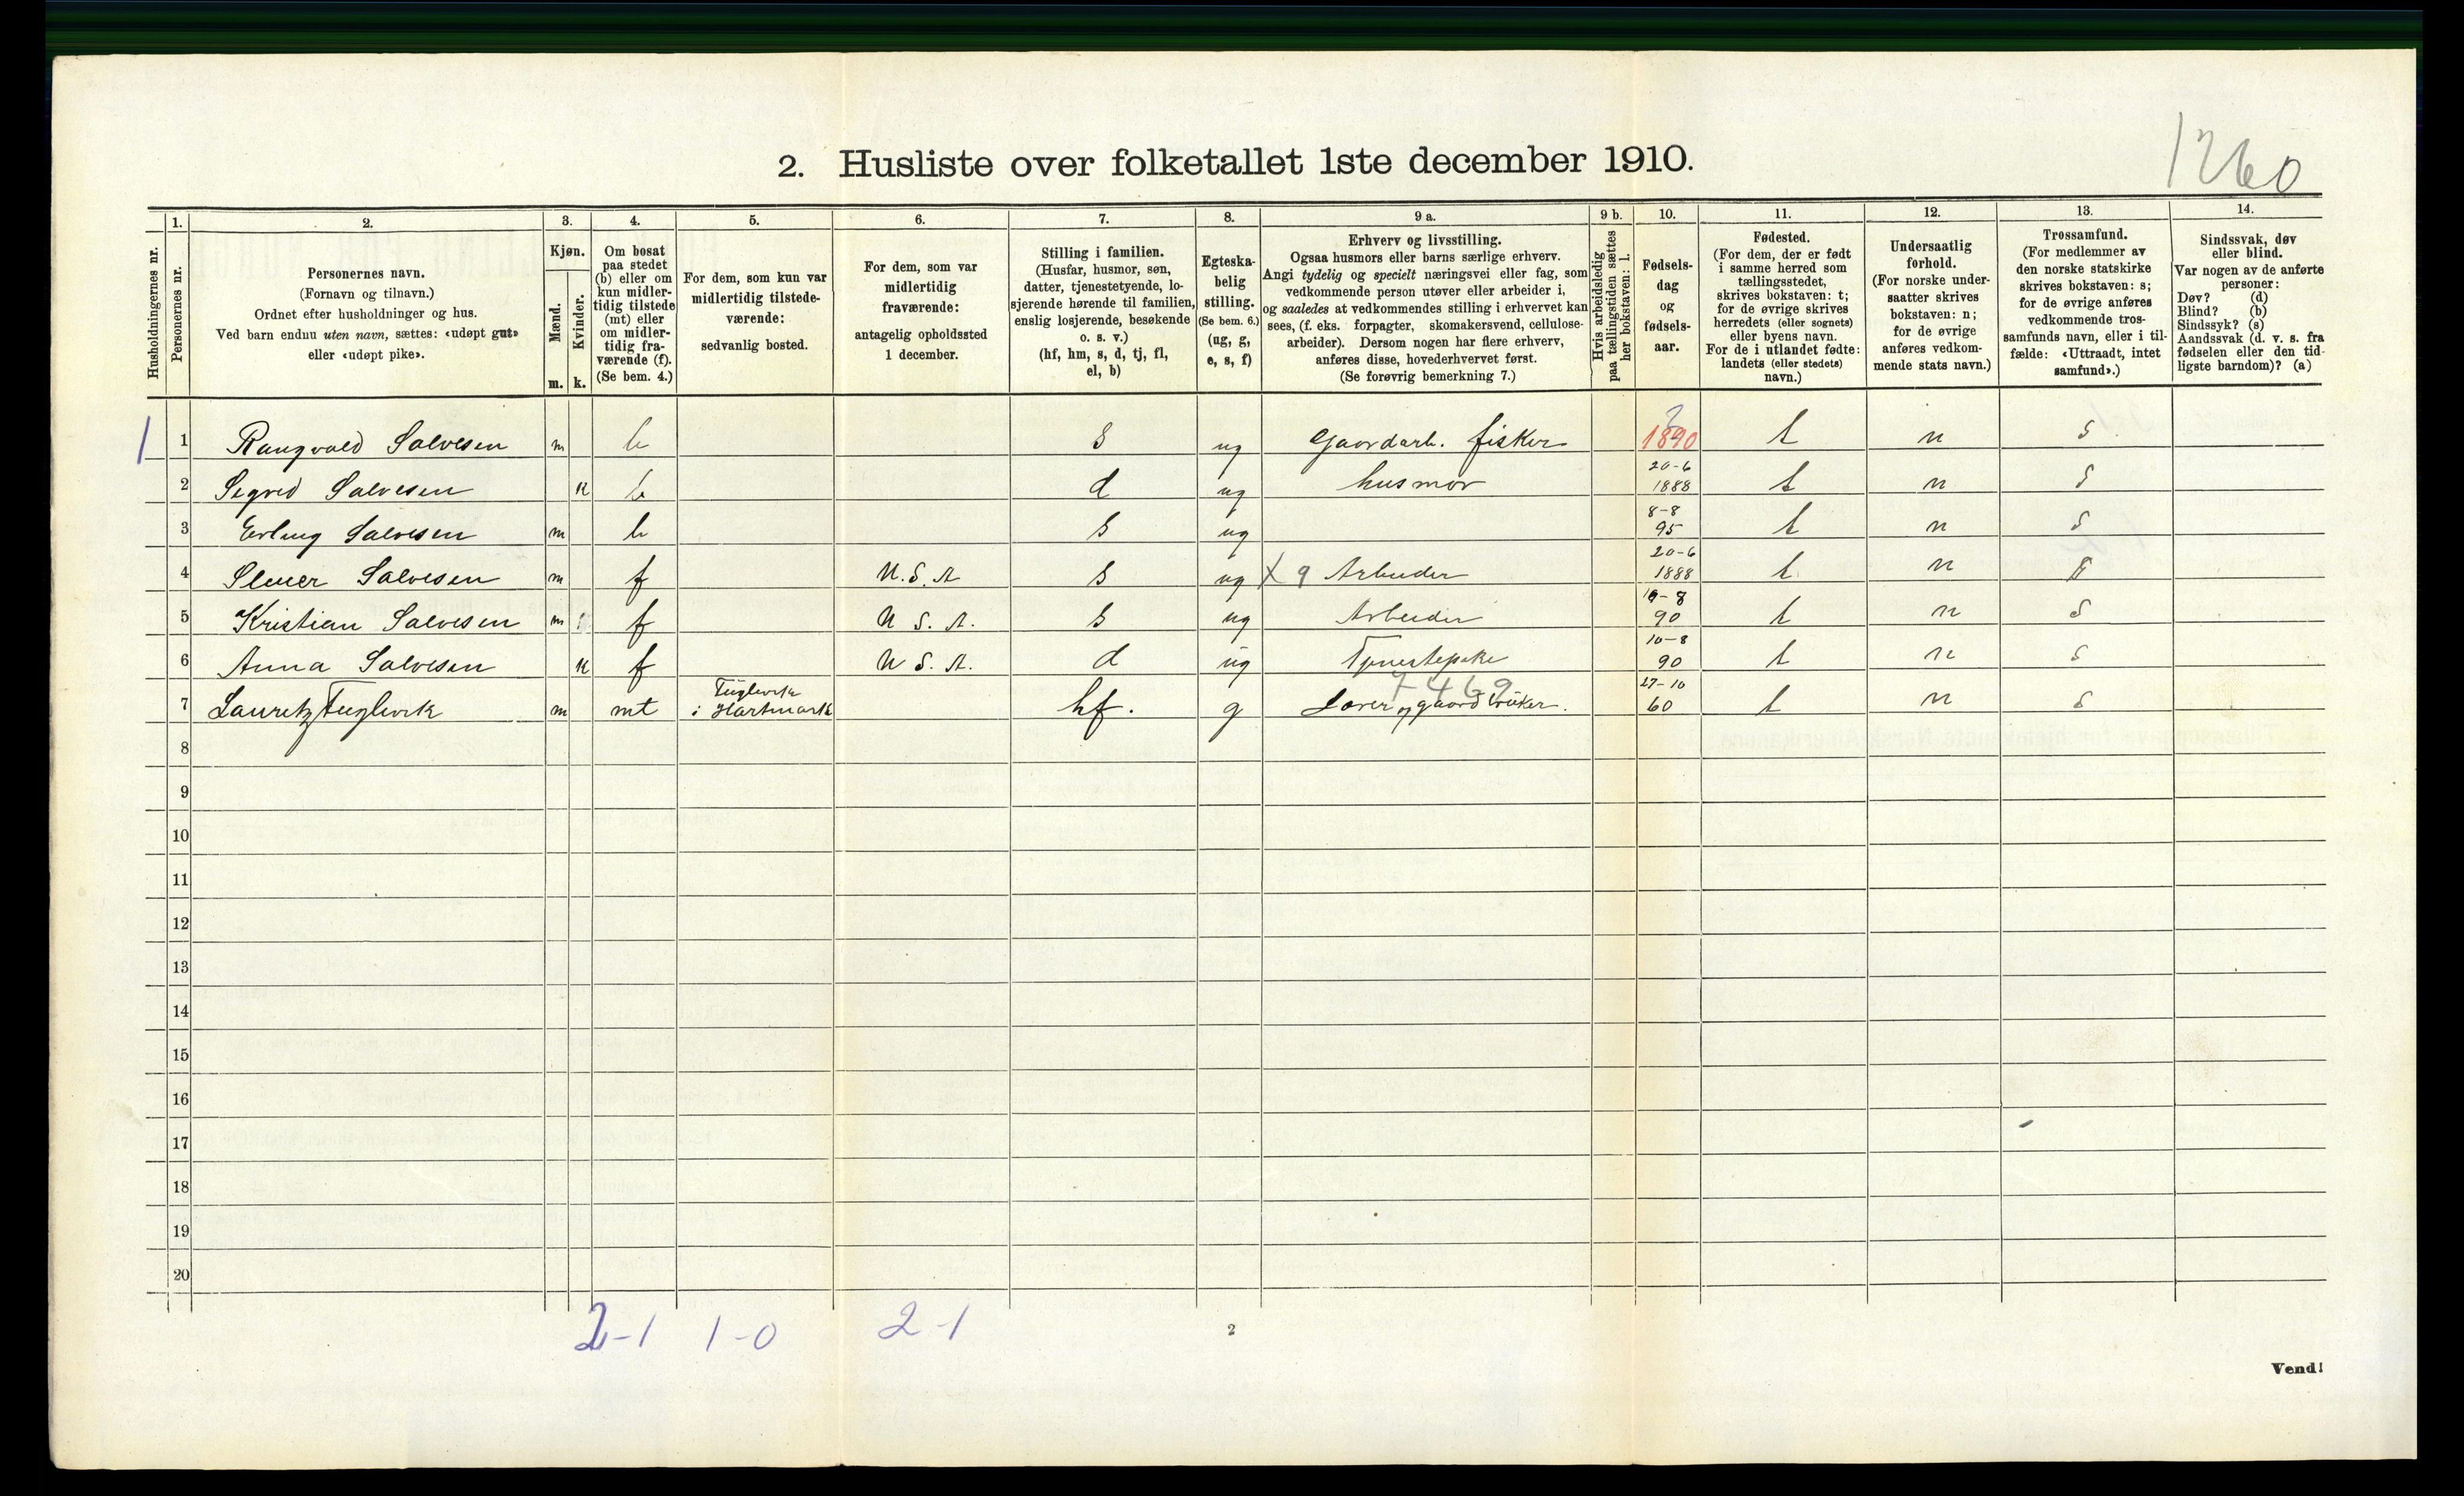 1260
2. Husliste over folketallet 1ste december 1910.
1. 2. 3. 4. 5. 6. 7. 8. 9 a. 9 b. 10. 11. 12. 13. 14.
Husholdningernes nr.
Personernes nr.
Personernes navn.
(Fornavn og tilnavn.)
Ordnet efter husholdninger og hus.
Ved barn endnu uten navn, sættes: «udøpt gut»
eller «udøpt pike».
Kjøn.
Mænd.
Kvinder.
m. k.
Om bosat
paa stedet
(b) eller om
kun midler-
tidig tilstede
(mt) eller
om midler-
tidig fra-
værende (f).
(Se bem. 4.)
For dem, som kun var
midlertidig tilstede-
værende:
sedvanlig bosted.
For dem, som var
midlertidig
fraværende:
antagelig opholdssted
1 december.
Stilling i familien.
(Husfar, husmor, søn,
datter, tjenestetyende, lo-
sjerende hørende til familien,
enslig losjerende, besøkende
o. s. v.)
(hf, hm, s, d, tj, fl,
el, b)
Egteska-
belig
stilling.
(Se bem. 6.)
(ug, g,
e, s, f)
Erhverv og livsstilling.
Ogsaa husmors eller barns særlige erhverv.
Angi tydelig og specielt næringsvei eller fag, som
vedkommende person utøver eller arbeider i,
og saaledes at vedkommendes stilling i erhvervet kan
sees, (f. eks. forpagter, skomakersvend, cellulose-
arbeider). Dersom nogen har flere erhverv,
anføres disse, hovederhvervet først.
(Se forøvrig bemerkning 7.)
Hvis arbeidsledig
paa tællingstiden sættes
her bokstaven: l.
Fødsels-
dag
og
fødsels-
aar.
Fødested.
(For dem, der er født
i samme herred som
tællingsstedet,
skrives bokstaven: t;
for de øvrige skrives
herredets (eller sognets)
eller byens navn.
For de i utlandet fødte:
landets (eller stedets)
navn.)
Undersaatlig
forhold.
(For norske under-
saatter skrives
bokstaven: n;
for de øvrige
anføres vedkom-
mende stats navn.)
Trossamfund.
(For medlemmer av
den norske statskirke
skrives bokstaven: s;
for de øvrige anføres
vedkommende tros-
samfunds navn, eller i til-
fælde: «Uttraadt, intet
samfund».)
Sindssvak, døv
eller blind.
Var nogen av de anførte
personer:
Døv? (d)
Blind? (b)
Sindssyk? (s)
Aandssvak (d. v. s. fra
fødselen eller den tid-
ligste barndom)? (a)
1 1 Rangvald Salvesen m b s ug Gaardarb. fisker 1890 t n s
2 Sigrid Salvesen k b d ug husmor 20-6 1888 t n s
3 Erling Salvesen m b s ug 8-8 95 t n s
4 Salvesen m f U.S.A s ug X 9 Arbeider 20-6 1888 t n s
5 Kristian Salvesen m f U S. A. s ug Arbeider 90 t n s
6 Anna Salvesen k f U S. A. d ug Tjenestepike 10-8 90 t n s
7 Lauritz Fuglevik m mt Fuglevik i Hartmark hf. g 7469 Lærer og gaardbruker. 27-10 60 t n s
8
9
10
11
12
13
14
15
16
17
18
19
20
2-1 1-0 2-1
2
Vend!